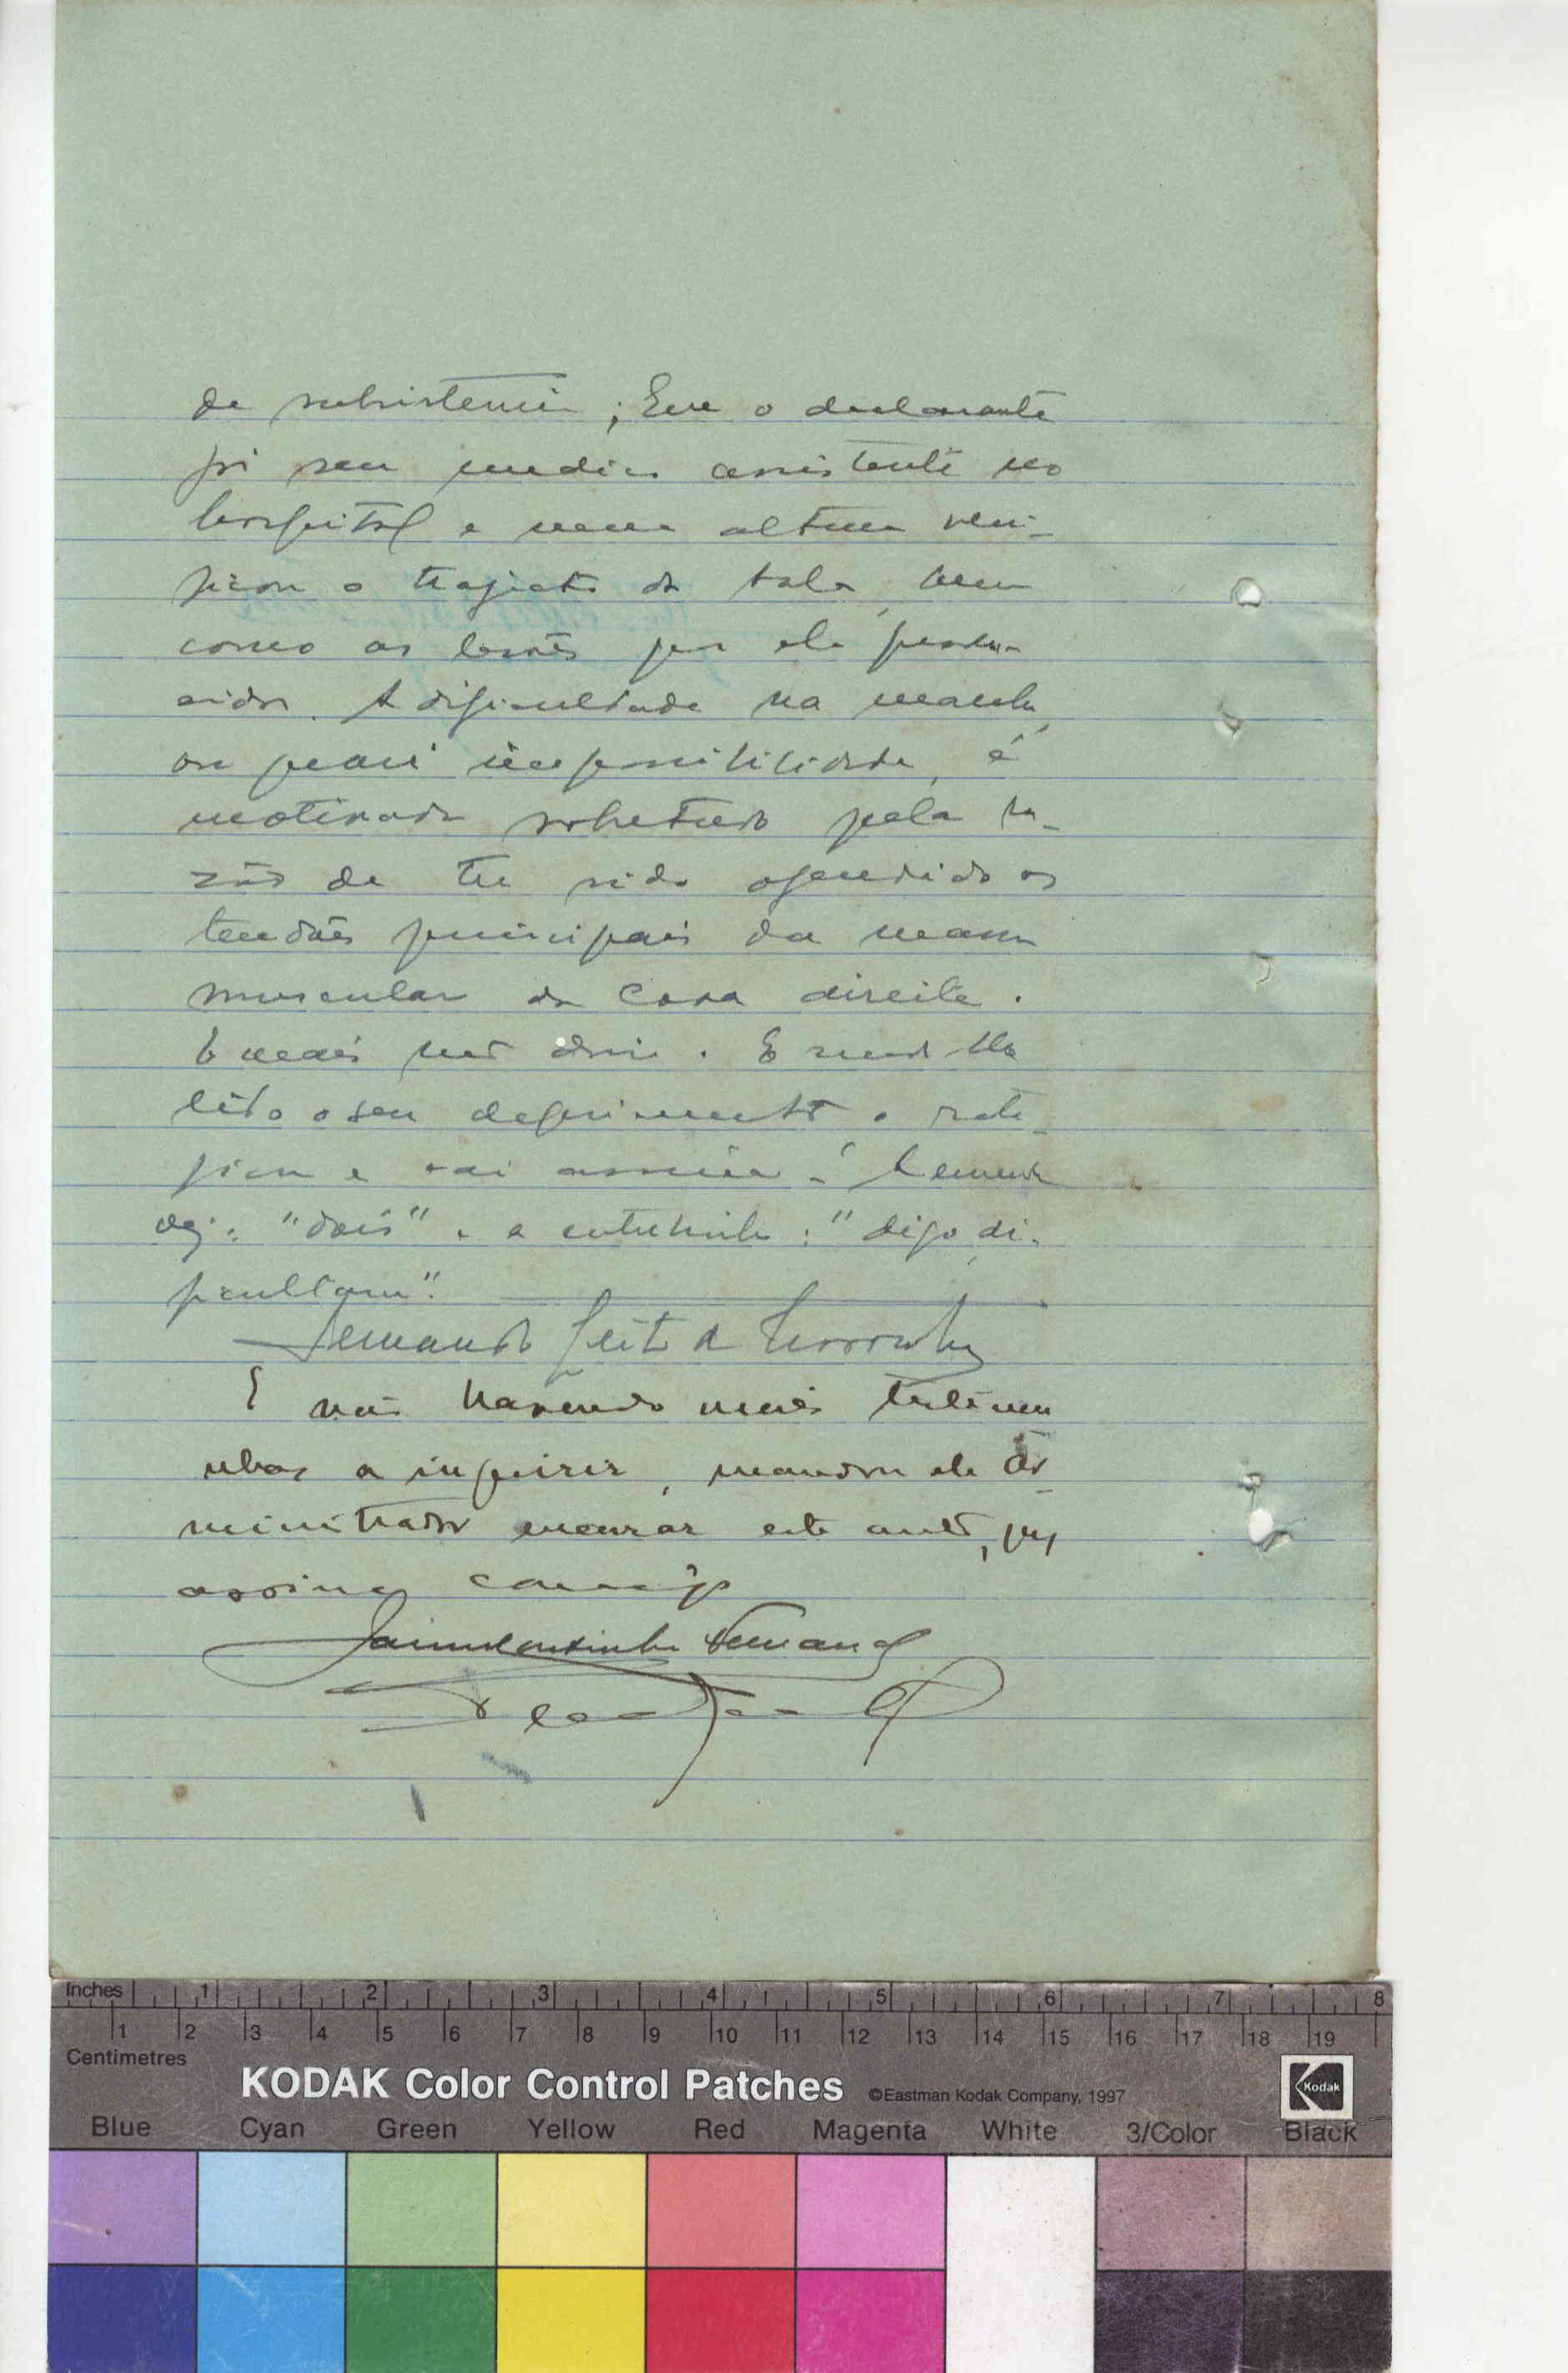 de subsistencia; Que o declarante
foi seu medico assistente no
hospital e nessa altura veri-
ficou o trajecto da bala, bem
como as lesões por ela produ-
zidas. A dificuldade na marcha,
ou quasi impossibilidade, é
motivada sobretudo pela ra-
zão de ter sido ofendido os
tendões principais da massa
muscular da coxa direita.
E mais não disse. E sendo-lhe
lido o seu depoimento o rati-
ficou e vai assinar.
"dois" e a entrelinha: "digo di-
ficultam".
E não havendo mais testemu
nhas a inquirir, mandou ele Ad-
ministrador encerrar este auto, que
assina comigo
Inches 1 2 3 4 5 6 7 8
1 2 3 4 5 6 7 8 9 10 11 12 13 14 15 16 17 18 19
Centimetres
KODAK Color Control Patches ©Eastman Kodak Company, 1997 Kodak
Blue Cyan Green Yellow Red Magenta White 3/Color Black